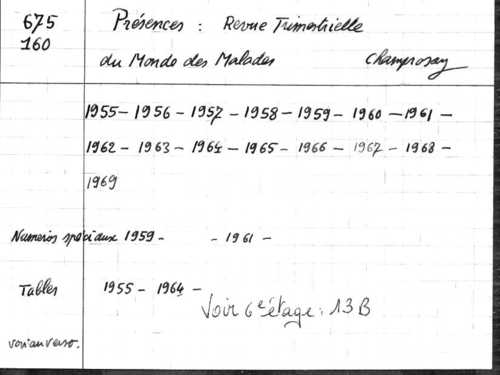 675 Présences : Revue Trimestrielle
160
du Monde des Malades Champrosay
1955 - 1956 - 1957 - 1958 - 1959 - 1960 - 1961 -
1962 - 1963 - 1964 - 1965 - 1966 - 1967 - 1968 -
1969
Numeros spéciaux 1959 - - 1961 -
Tables 1955 - 1964 -
Voir 6e étage : 13 B
voir au verso.